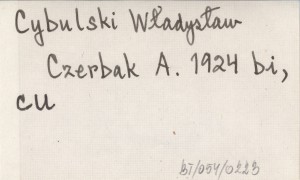 Cybulski Władysław
Czerbak A. 1924 bi,
cu
BI/054/0223